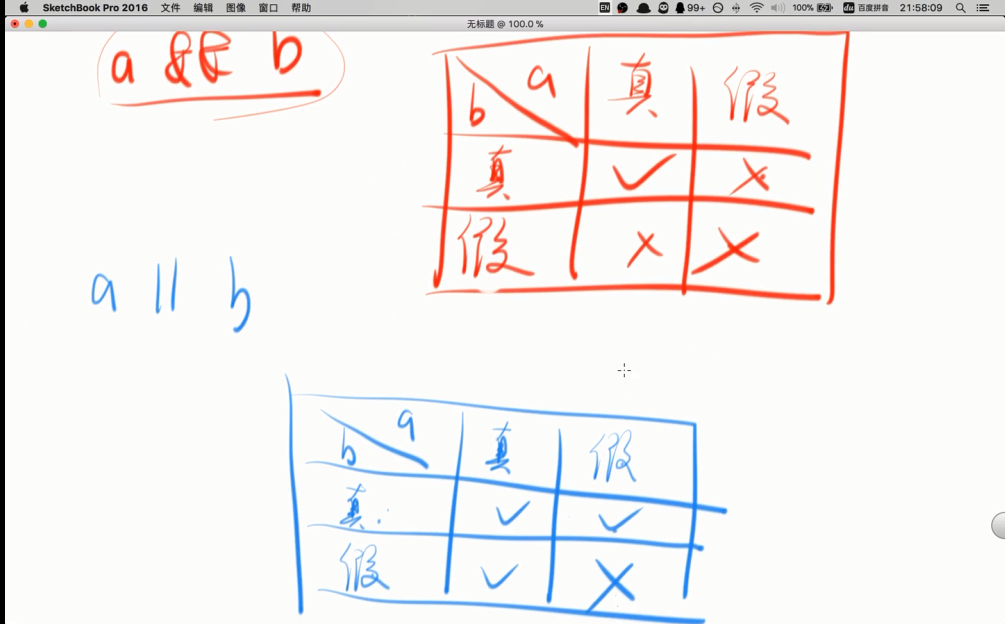 SketchBook Pro 2016 文件 编辑 图像 窗口 帮助 EN 99+ 100% du 百度拼音 21:58:09
无标题 @ 100.0 %
a && b
a 真 假
b
真 ✓ ×
假 × ×
a || b
a 真 假
b
真 ✓ ✓
假 ✓ ×